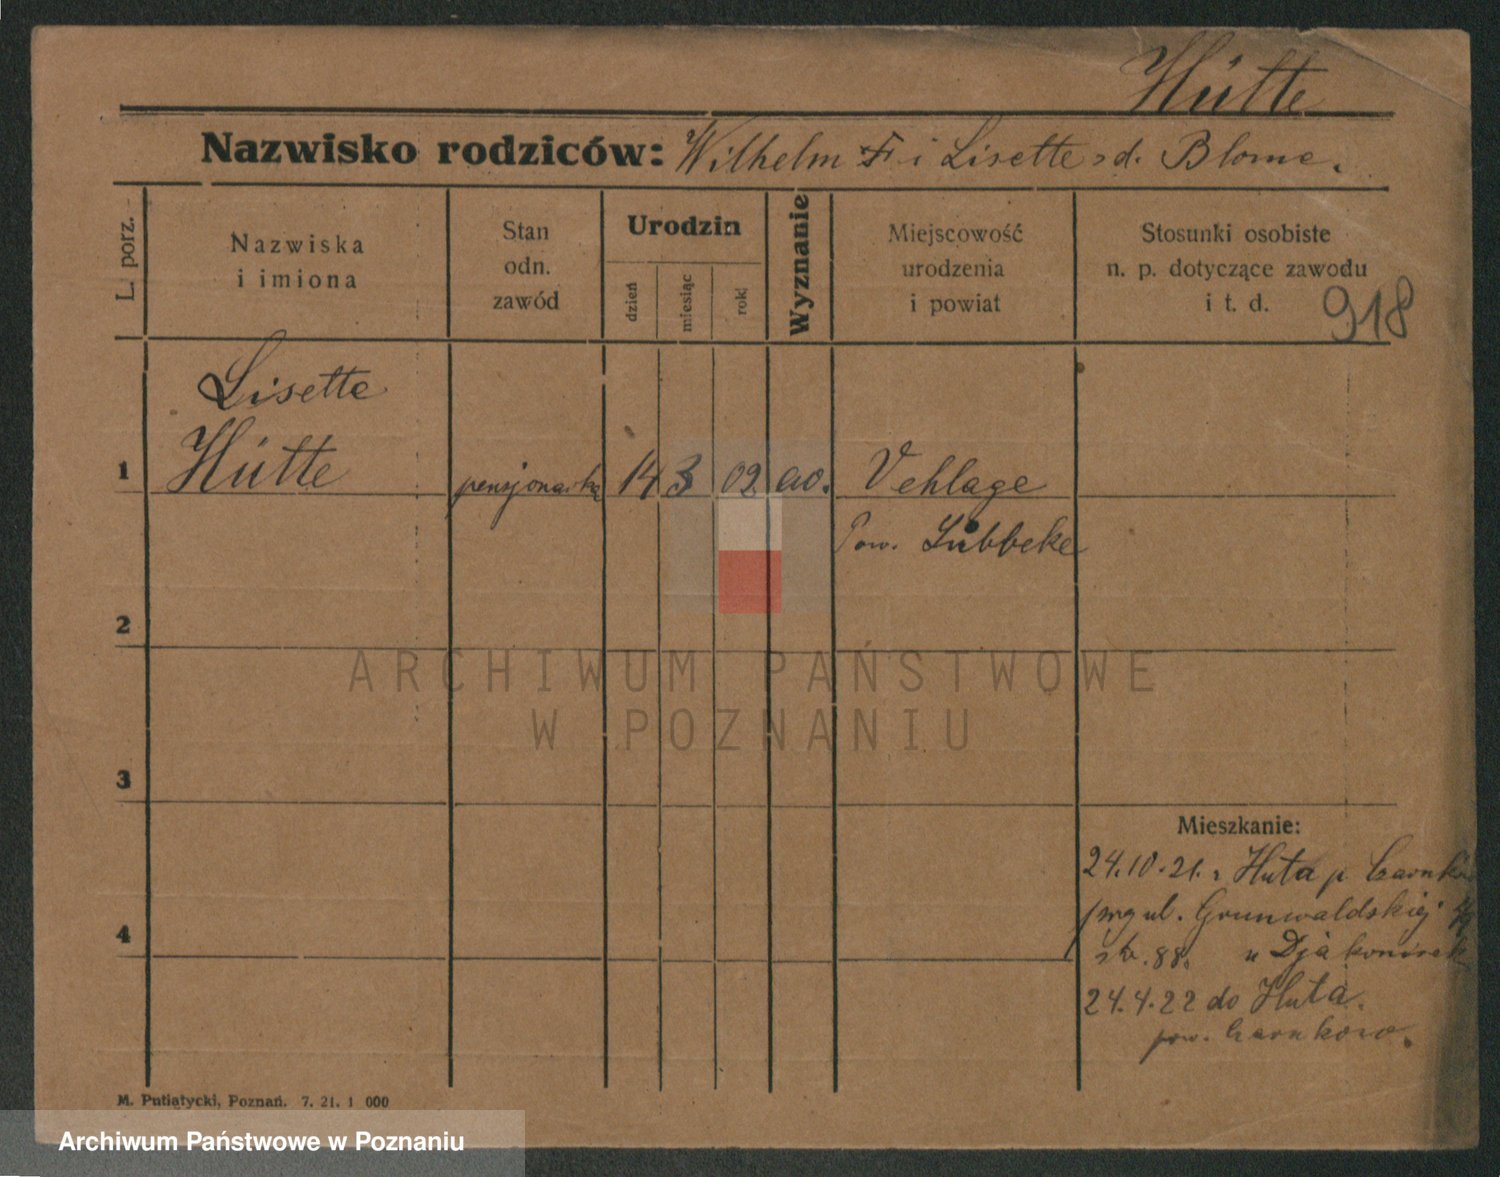 Hütte
Nazwisko rodziców: Wilhelm i Lisette d. Blome.
L. porz.
Nazwiska
i imiona
Stan
odn.
zawód
Urodzin
dzień
miesiąc
rok
Wyznanie
Miejscowość
urodzenia
i powiat
Stosunki osobiste
n. p. dotyczące zawodu
i t. d.
918
Lisette
1 Hütte pensjonarka 14 3 02 Vehlage
Pow. Lübbeke
2
3
Mieszkanie:
24.10.21. z Huta p. Czarnków
ul. Grunwaldskiej
4
88. u Djakonisek
24.4.22 do Huta.
pow. Czarnkow.
M. Putiatycki, Poznań. 7. 21. 1 000
ARCHIWUM PAŃSTWOWE
W POZNANIU
Archiwum Państwowe w Poznaniu